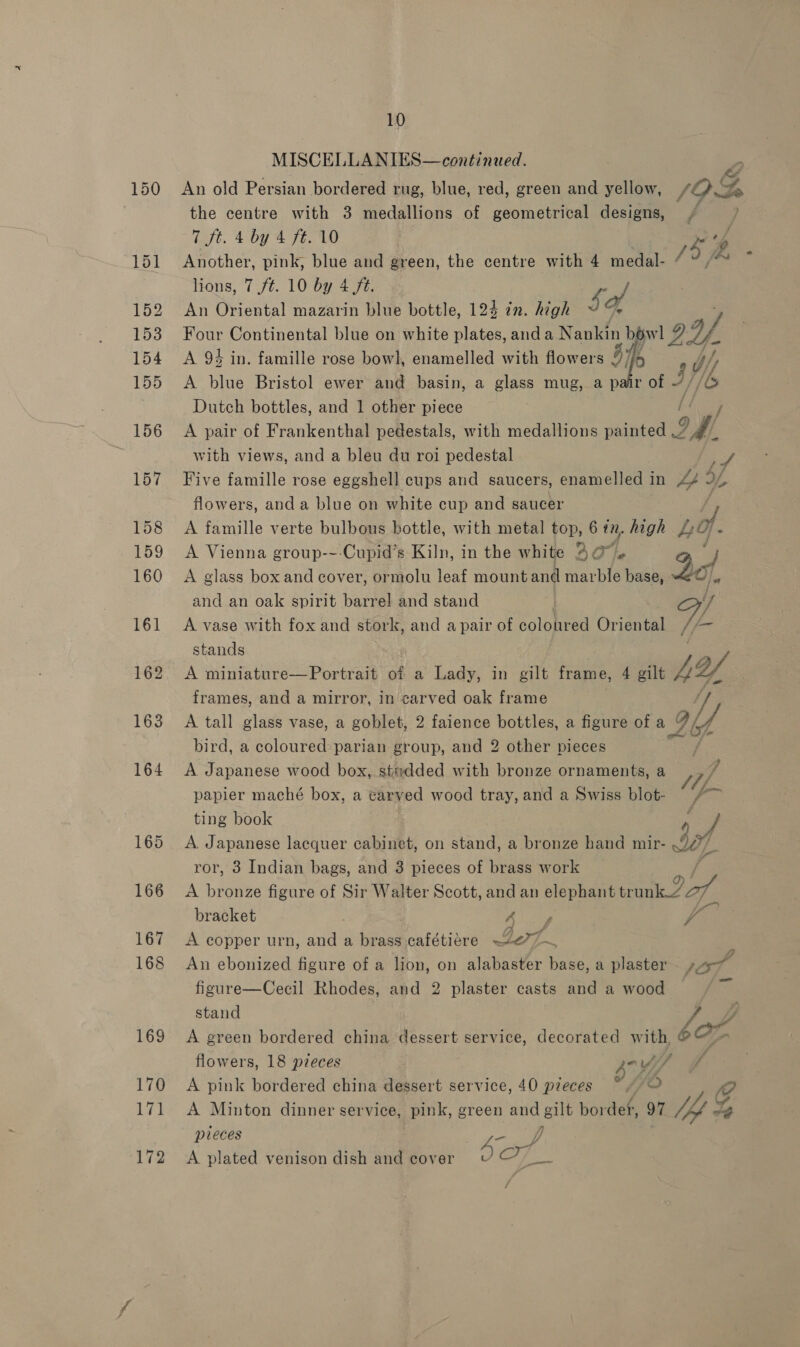 10
MISCELLANIES—continued.
150 An old Persian bordered rug, blue, red, green and yellow,
the centre with 3 medallions of geometrical designs,
7 ft. 4 by 4 ft. 10
151 Another, pink, blue and green, the centre with 4 medal-
lions, 7 ft. 10 by 4 ft.
152 An Oriental mazarin blue bottle, 12½ in. high
153 Four Continental blue on white plates, and a Nankin bowl
154 A 9½ in. famille rose bowl, enamelled with flowers
155 A blue Bristol ewer and basin, a glass mug, a pair of
Dutch bottles, and 1 other piece
156 A pair of Frankenthal pedestals, with medallions painted
with views, and a bleu du roi pedestal
157 Five famille rose eggshell cups and saucers, enamelled in
flowers, and a blue on white cup and saucer
158 A famille verte bulbous bottle, with metal top, 6 in. high
159 A Vienna group--Cupid's Kiln, in the white
160 A glass box and cover, ormolu leaf mount and marble base,
and an oak spirit barrel and stand
161 A vase with fox and stork, and a pair of coloured Oriental
stands
162 A miniature—Portrait of a Lady, in gilt frame, 4 gilt
frames, and a mirror, in carved oak frame
163 A tall glass vase, a goblet, 2 faience bottles, a figure of a
bird, a coloured parian group, and 2 other pieces
164 A Japanese wood box, studded with bronze ornaments, a
papier maché box, a carved wood tray, and a Swiss blot-
ting book
165 A Japanese lacquer cabinet, on stand, a bronze hand mir-
ror, 3 Indian bags, and 3 pieces of brass work
166 A bronze figure of Sir Walter Scott, and an elephant trunk
bracket
167 A copper urn, and a brass cafétière
168 An ebonized figure of a lion, on alabaster base, a plaster
figure—Cecil Rhodes, and 2 plaster casts and a wood
stand
169 A green bordered china dessert service, decorated with
flowers, 18 pieces
170 A pink bordered china dessert service, 40 pieces
171 A Minton dinner service, pink, green and gilt border, 97
pieces
172 A plated venison dish and cover